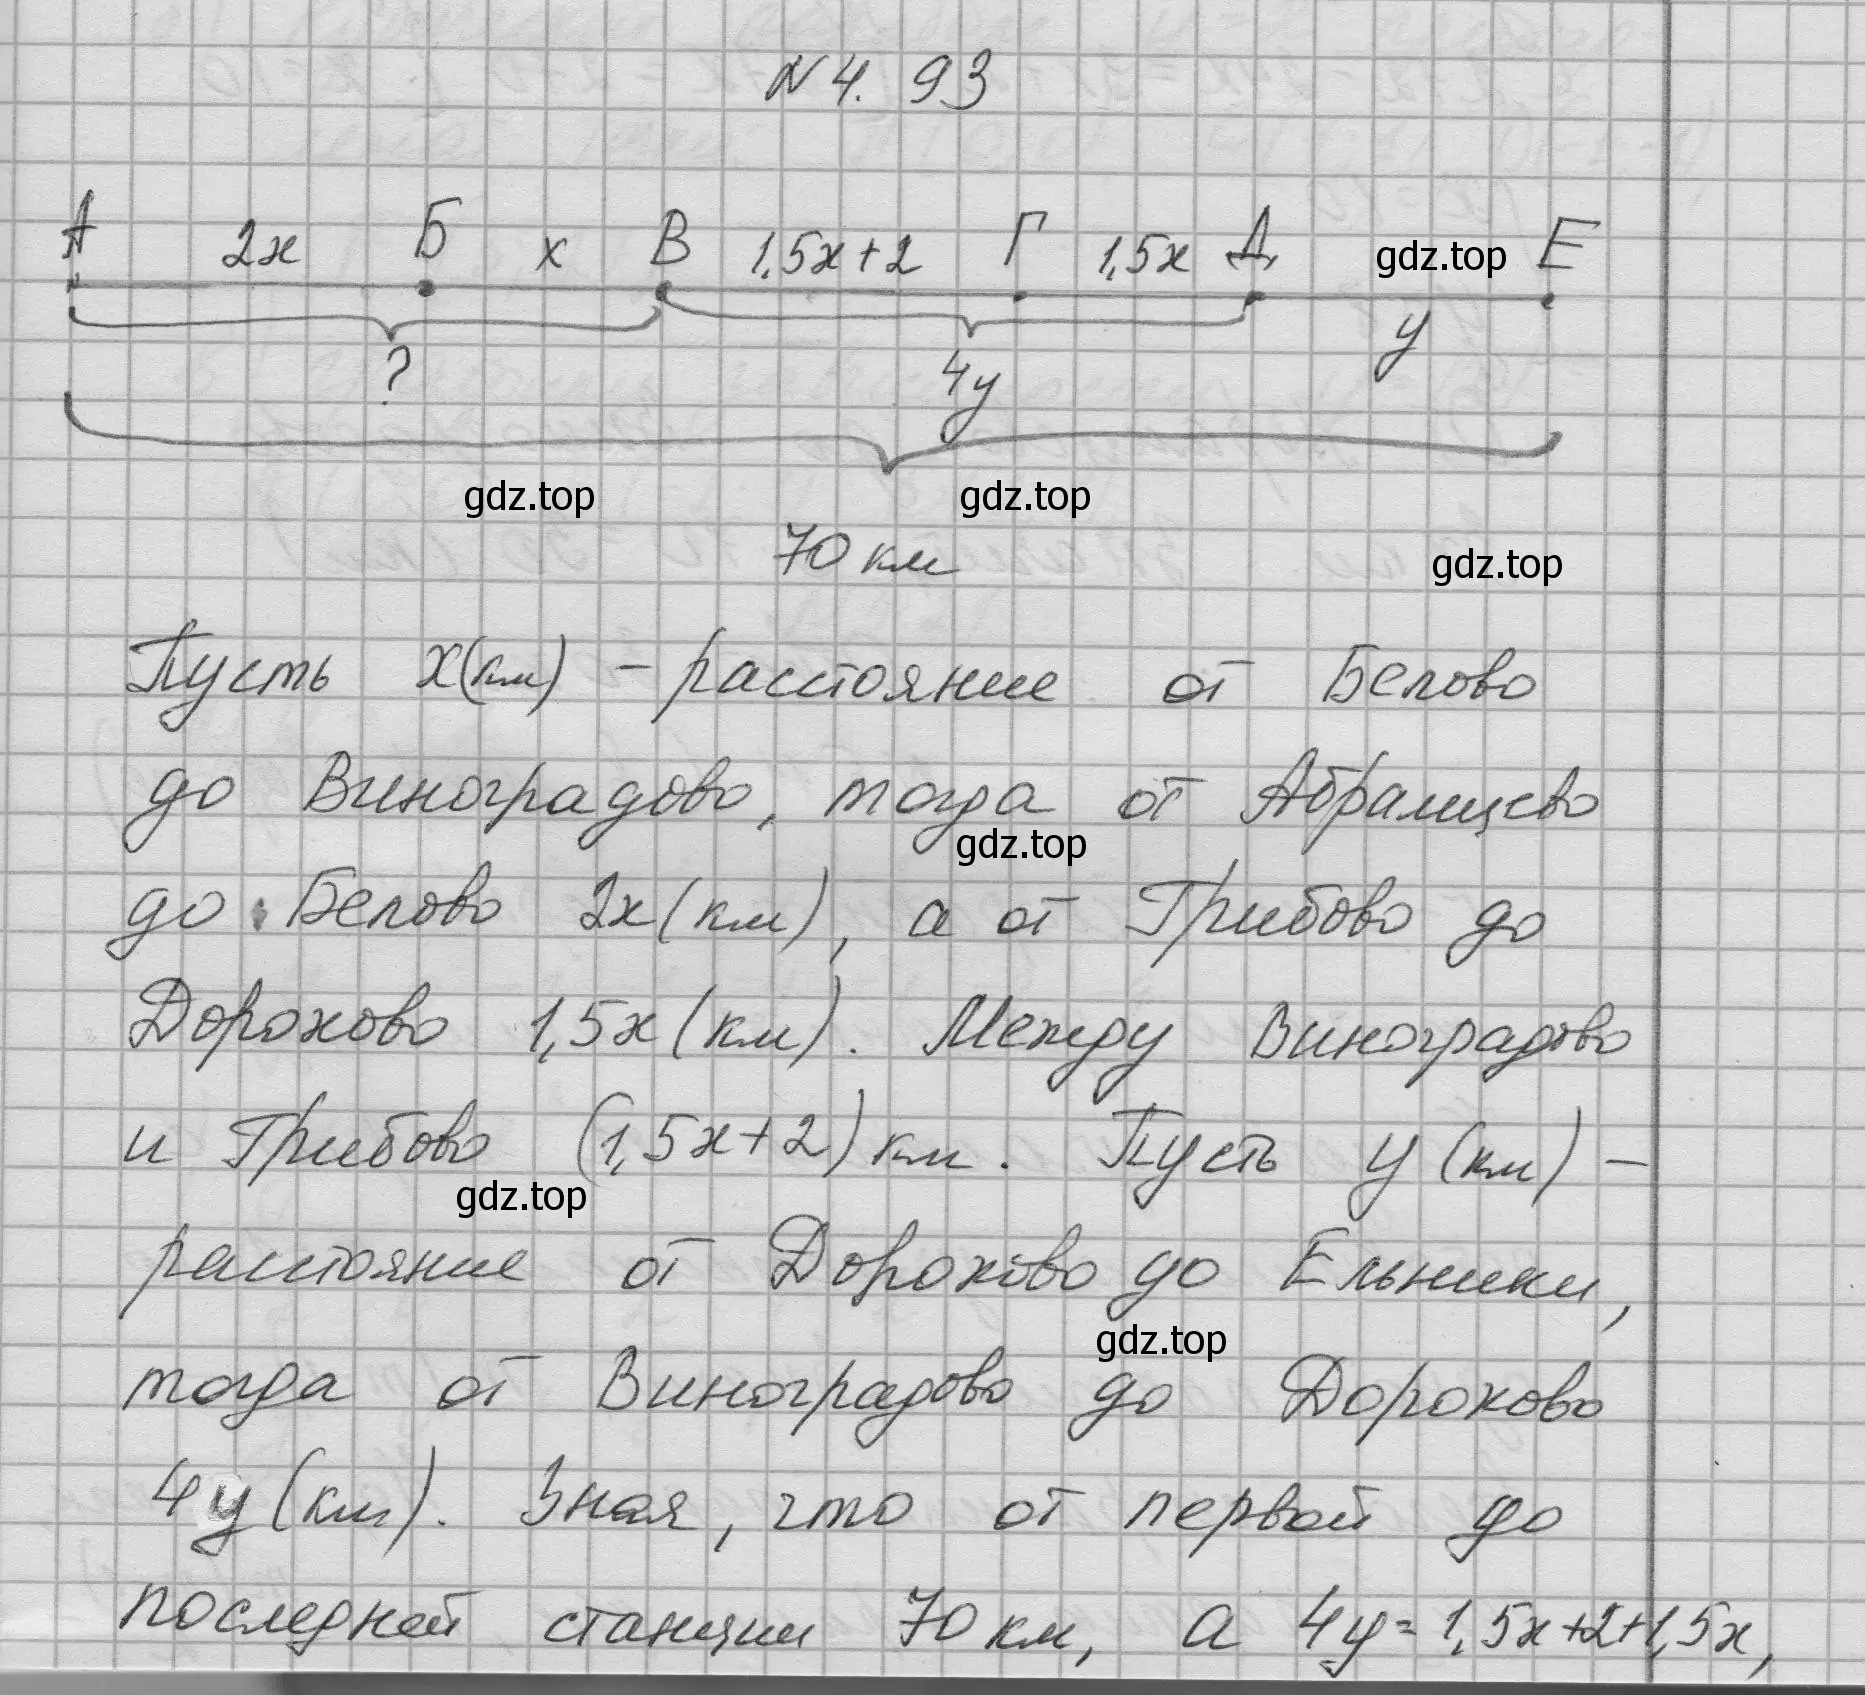 N 4. 93
А 2x Б x В 1,5x+2 Г 1,5x Д gdz.top Е
y
? 4y
gdz.top gdz.top
70 км gdz.top
Пусть x(км) – расстояние от Белово
до Виноградово, тогда от Абрамцево
gdz.top
до Белово 2x(км), а от Грибово до
Дорохово 1,5x(км). Между Виноградово
и Грибово (1,5x+2) км. Пусть y (км) –
gdz.top
расстояние от Дорохово до Ельники,
gdz.top
тогда от Виноградово до Дорохово
4y (км). Зная, что от первой до
последней станции 70 км, а 4y=1,5x+2+1,5x,